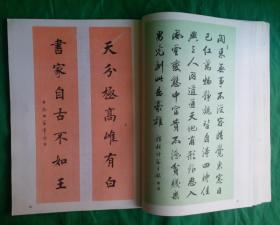 閑來無事不從容睡覺東窗日
已紅萬物靜觀皆自得四時佳
興與人同道通天地有形外思入
風雲變態中富貴不淫貧賤樂
男兒到此是豪雄
天分極高惟有白
書家自古不如王